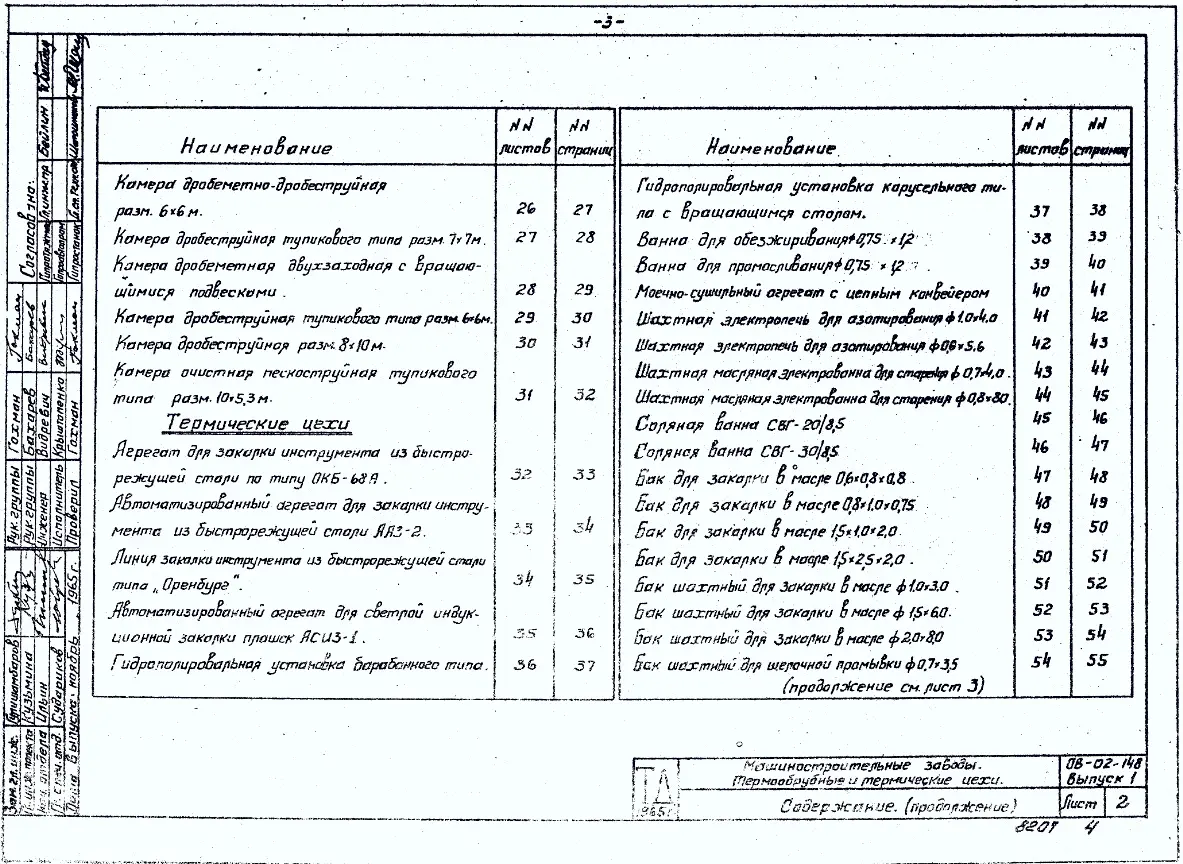 -3-
Наименование
NN листов
NN страниц
Камера дробеметно-дробеструйная
разм. 6×6 м. 26 27
Камера дробеструйная тупикового типа разм. 7×7м. 27 28
Камера дробеметная двухзаходная с вращаю-
щимися подвесками. 28 29
Камера дробеструйная тупикового типа разм. 6×6м. 29 30
Камера дробеструйная разм. 8×10м. 30 31
Камера очистная пескоструйная тупикового
типа разм. 10×5,3м. 31 32
Термические цехи
Агрегат для закалки инструмента из быстро-
режущей стали по типу ОКБ-68А. 32 33
Автоматизированный агрегат для закалки инстру-
мента из быстрорежущей стали ААЗ-2. 33 34
Линия закалки инструмента из быстрорежущей стали
типа „Оренбург". 34 35
Автоматизированный агрегат для светлой индук-
ционной закалки плашек АСИЗ-1. 35 36
Гидрополировальная установка барабанного типа. 36 37
Наименование
NN листов
NN страниц
Гидрополировальная установка карусельного ти-
па с вращающимся столом. 37 38
Ванна для обезжиривания ф0,75×1,2 38 39
Ванна для промасливания ф0,75×1,2. 39 40
Моечно-сушильный агрегат с цепным конвейером 40 41
Шахтная электропечь для азотирования ф1.0×4,0 41 42
Шахтная электропечь для азотирования ф0,8×5.6 42 43
Шахтная масляная электрованна для старения ф0,7×4,0. 43 44
Шахтная масляная электрованна для старения ф0,8×8.0. 44 45
Соляная ванна СВГ-20/8,5 45 46
Соляная ванна СВГ-30/8,5 46 47
Бак для закалки в масле 0,6×0,8×0,8 47 48
Бак для закалки в масле 0,8×1.0×0,75 48 49
Бак для закалки в масле 1,5×1,0×2,0. 49 50
Бак для закалки в масле 1,5×2,5×2,0. 50 51
Бак шахтный для закалки в масле ф1.0×3.0. 51 52
Бак шахтный для закалки в масле ф1,5×6.0. 52 53
Бак шахтный для закалки в масле ф2,0×8,0 53 54
Бак шахтный для щелочной промывки ф0,7×3,5 54 55
(продолжение см. лист 3)
Согласовано:
Гл.инж.пр. Бейлин
Рук.группы Гохман
Рук.группы Бахарев
Инженер Видревич
Исполнитель Крыштопенко
Проверил Гохман
Зам.гл.инж.
Кузьмина
Нач. отдела Ильин
Гл. спец.отд. Судариков
Дата выпуска: ноябрь 1965 г.
ТД
1965г.
Машиностроительные заводы.
Термообрубные и термические цехи.
Содержание. (продолжение)
ОВ-02-148
Выпуск 1
Лист 2
8207 4